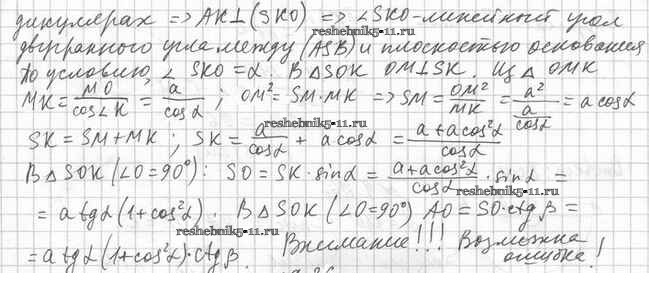 дикулярах => AK⊥(SKO) => ∠SKO - линейный угол
двугранного угла между (ASB) и плоскостью основания
По условию, ∠ SKO = α. В △ SOK OM⊥SK. Из △ OMK
MK = MO/cos∠K = a/cosα ; OM² = SM·MK => SM = OM²/MK = a²/(a/cosα) = a cosα
reshebnik5-11.ru
reshebnik5-11.ru
SK = SM + MK ; SK = a/cosα + a cosα = (a + a cos²α)/cosα
В △ SOK (∠O=90°): SO = SK · sinα = (a + a cos²α)/cosα · sinα =
reshebnik5-11.ru
= a tgα (1 + cos²α). В △ SOK (∠O=90°) AO = SO · ctgβ =
reshebnik5-11.ru
= a tgα (1 + cos²α) · ctgβ. Внимание!!! Возможна ошибка!